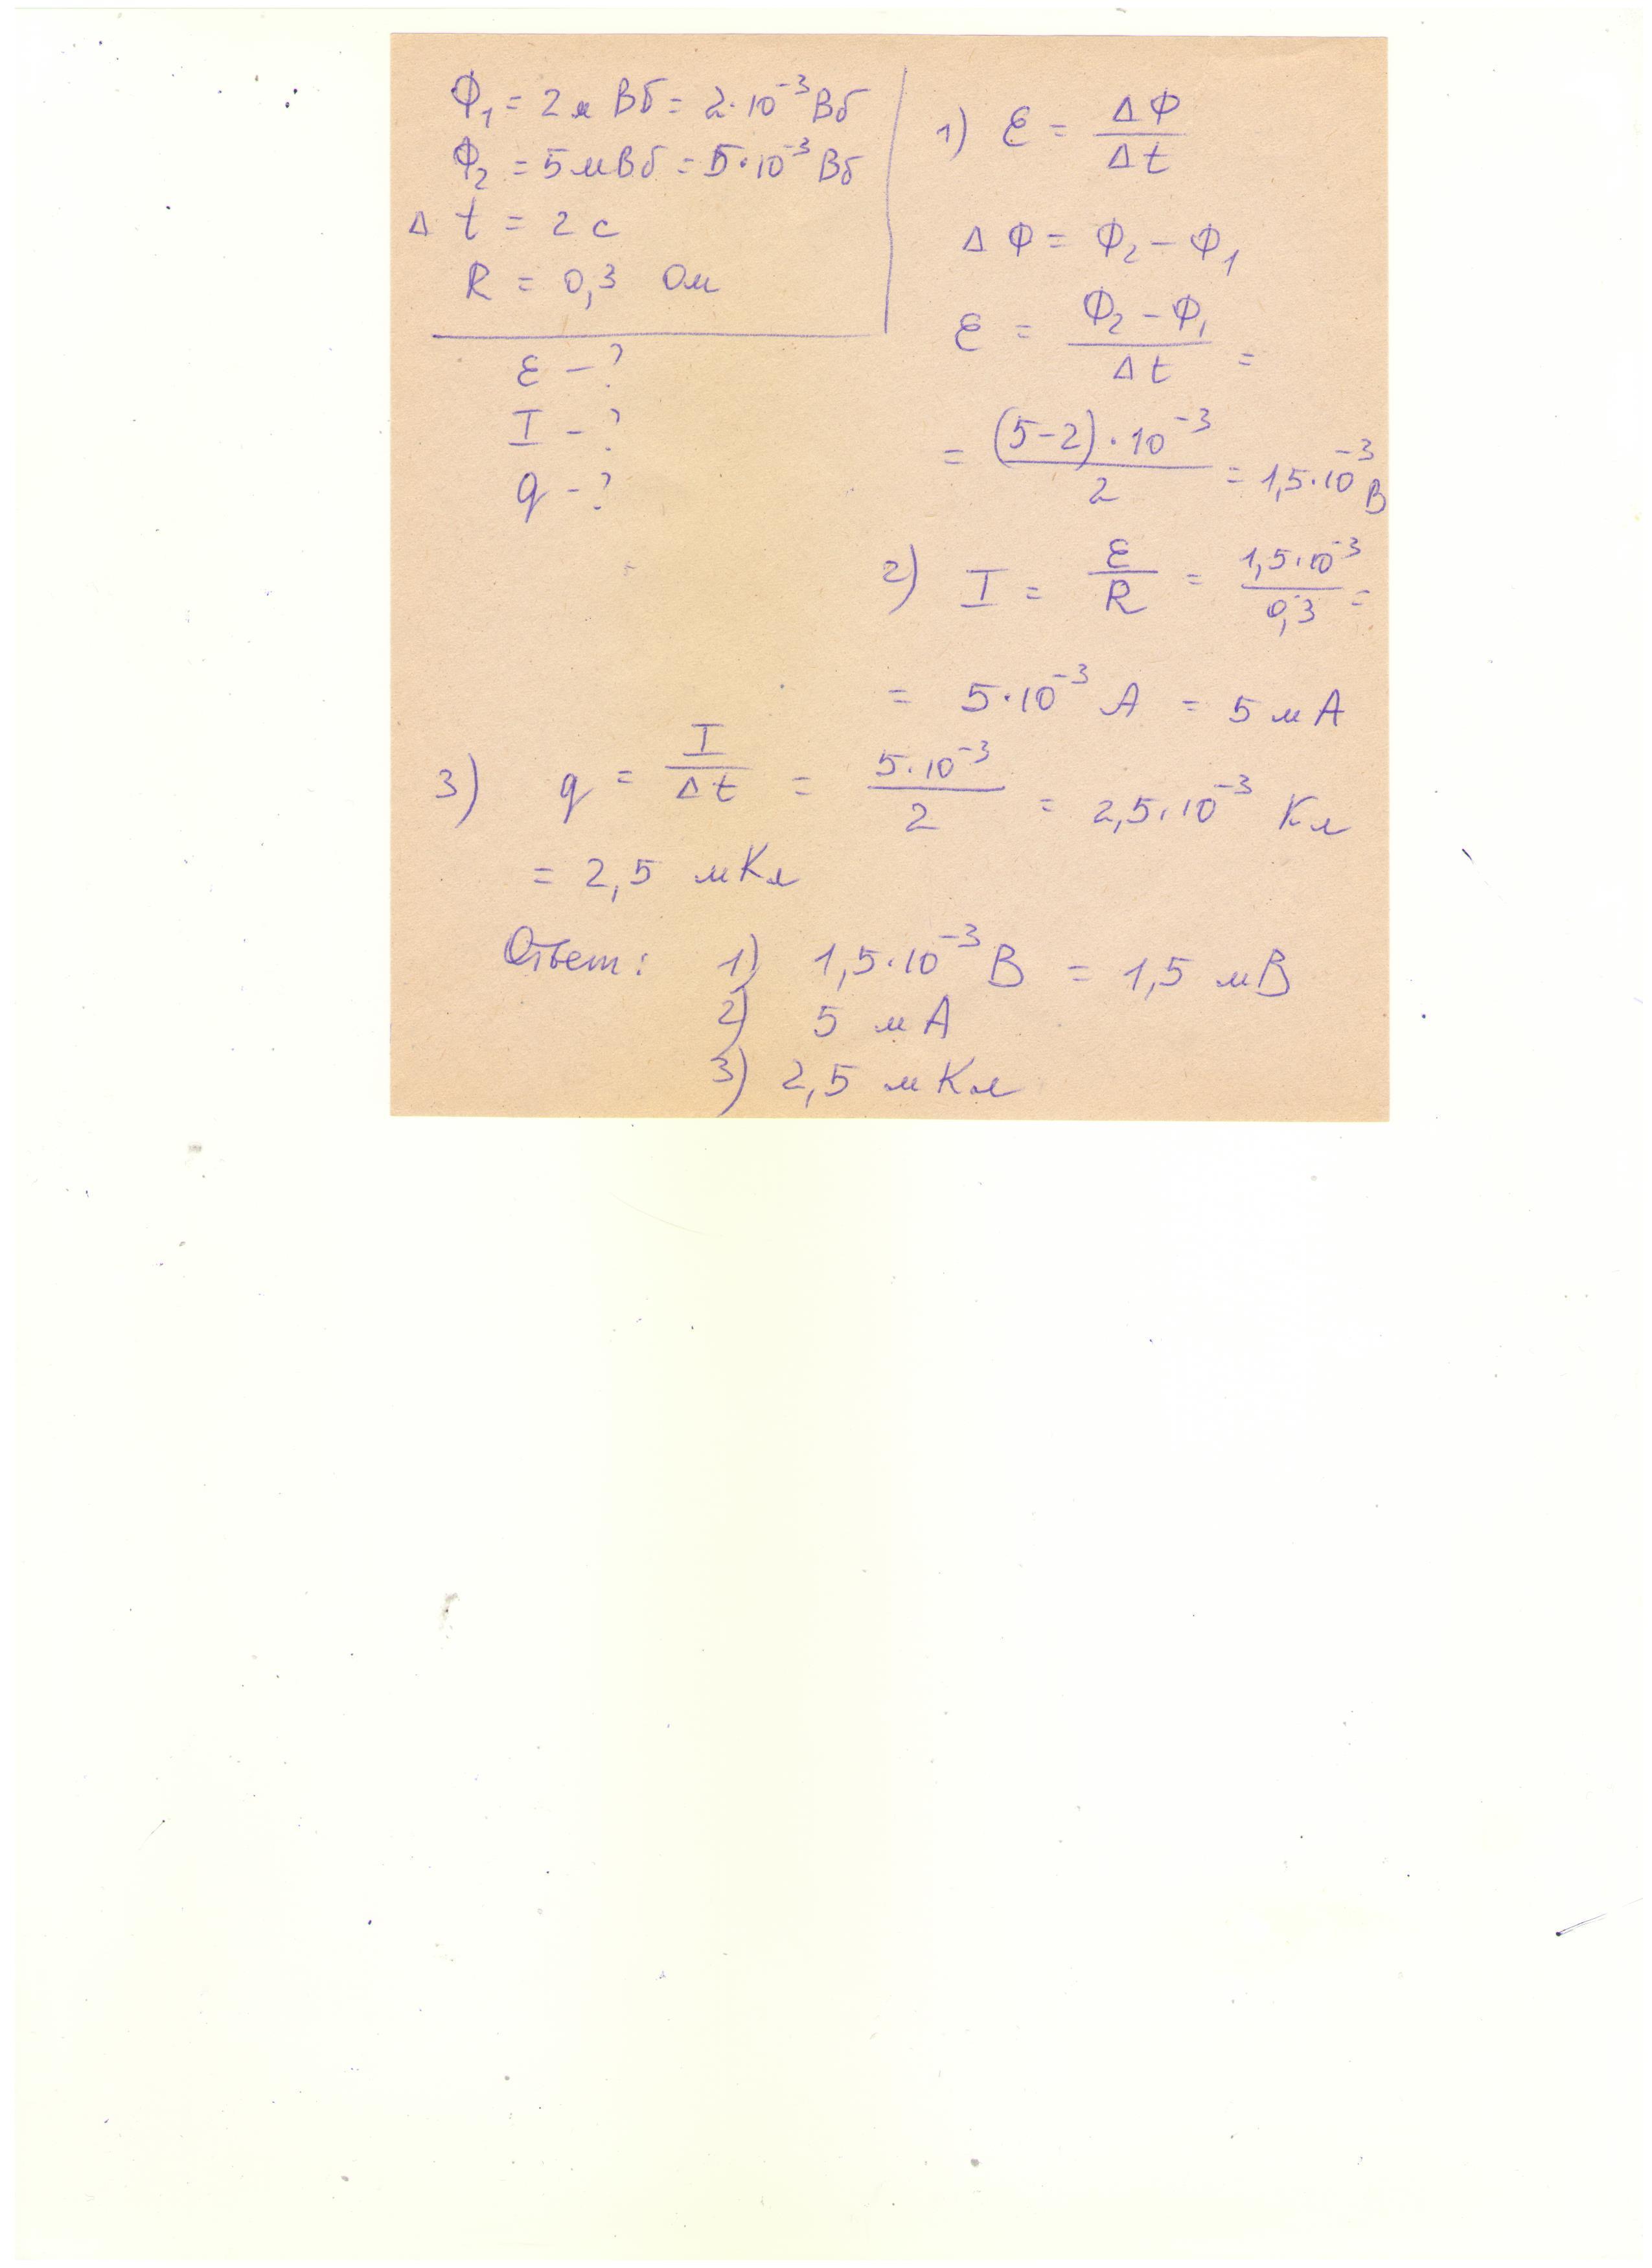 Ф₁ = 2 м Вб = 2·10⁻³ Вб
Ф₂ = 5 мВб = 5·10⁻³ Вб
Δ t = 2 с
R = 0,3 Ом
ε – ?
I – ?
q – ?
1) ε = ΔФ / Δt
Δ Ф = Ф₂ – Ф₁
ε = (Ф₂ – Ф₁) / Δt =
= (5–2)·10⁻³ / 2 = 1,5·10⁻³ В
2) I = ε / R = 1,5·10⁻³ / 0,3 =
= 5·10⁻³ А = 5 мА
3) q = I / Δt = 5·10⁻³ / 2 = 2,5·10⁻³ Кл
= 2,5 мКл
Ответ: 1) 1,5·10⁻³ В = 1,5 мВ
2) 5 мА
3) 2,5 мКл